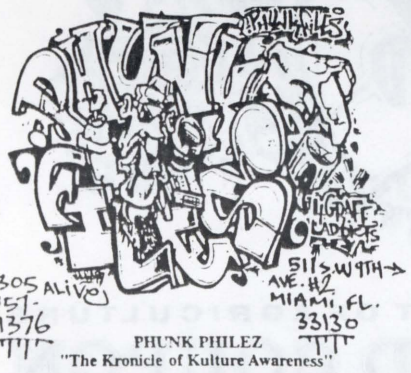 PHUNK
FILES
305 ALiVe
1376
4 GRAFF
511 S.W 9TH
AVE. #2
MIAMI, FL.
33130
PHUNK PHILEZ
"The Kronicle of Kulture Awareness"